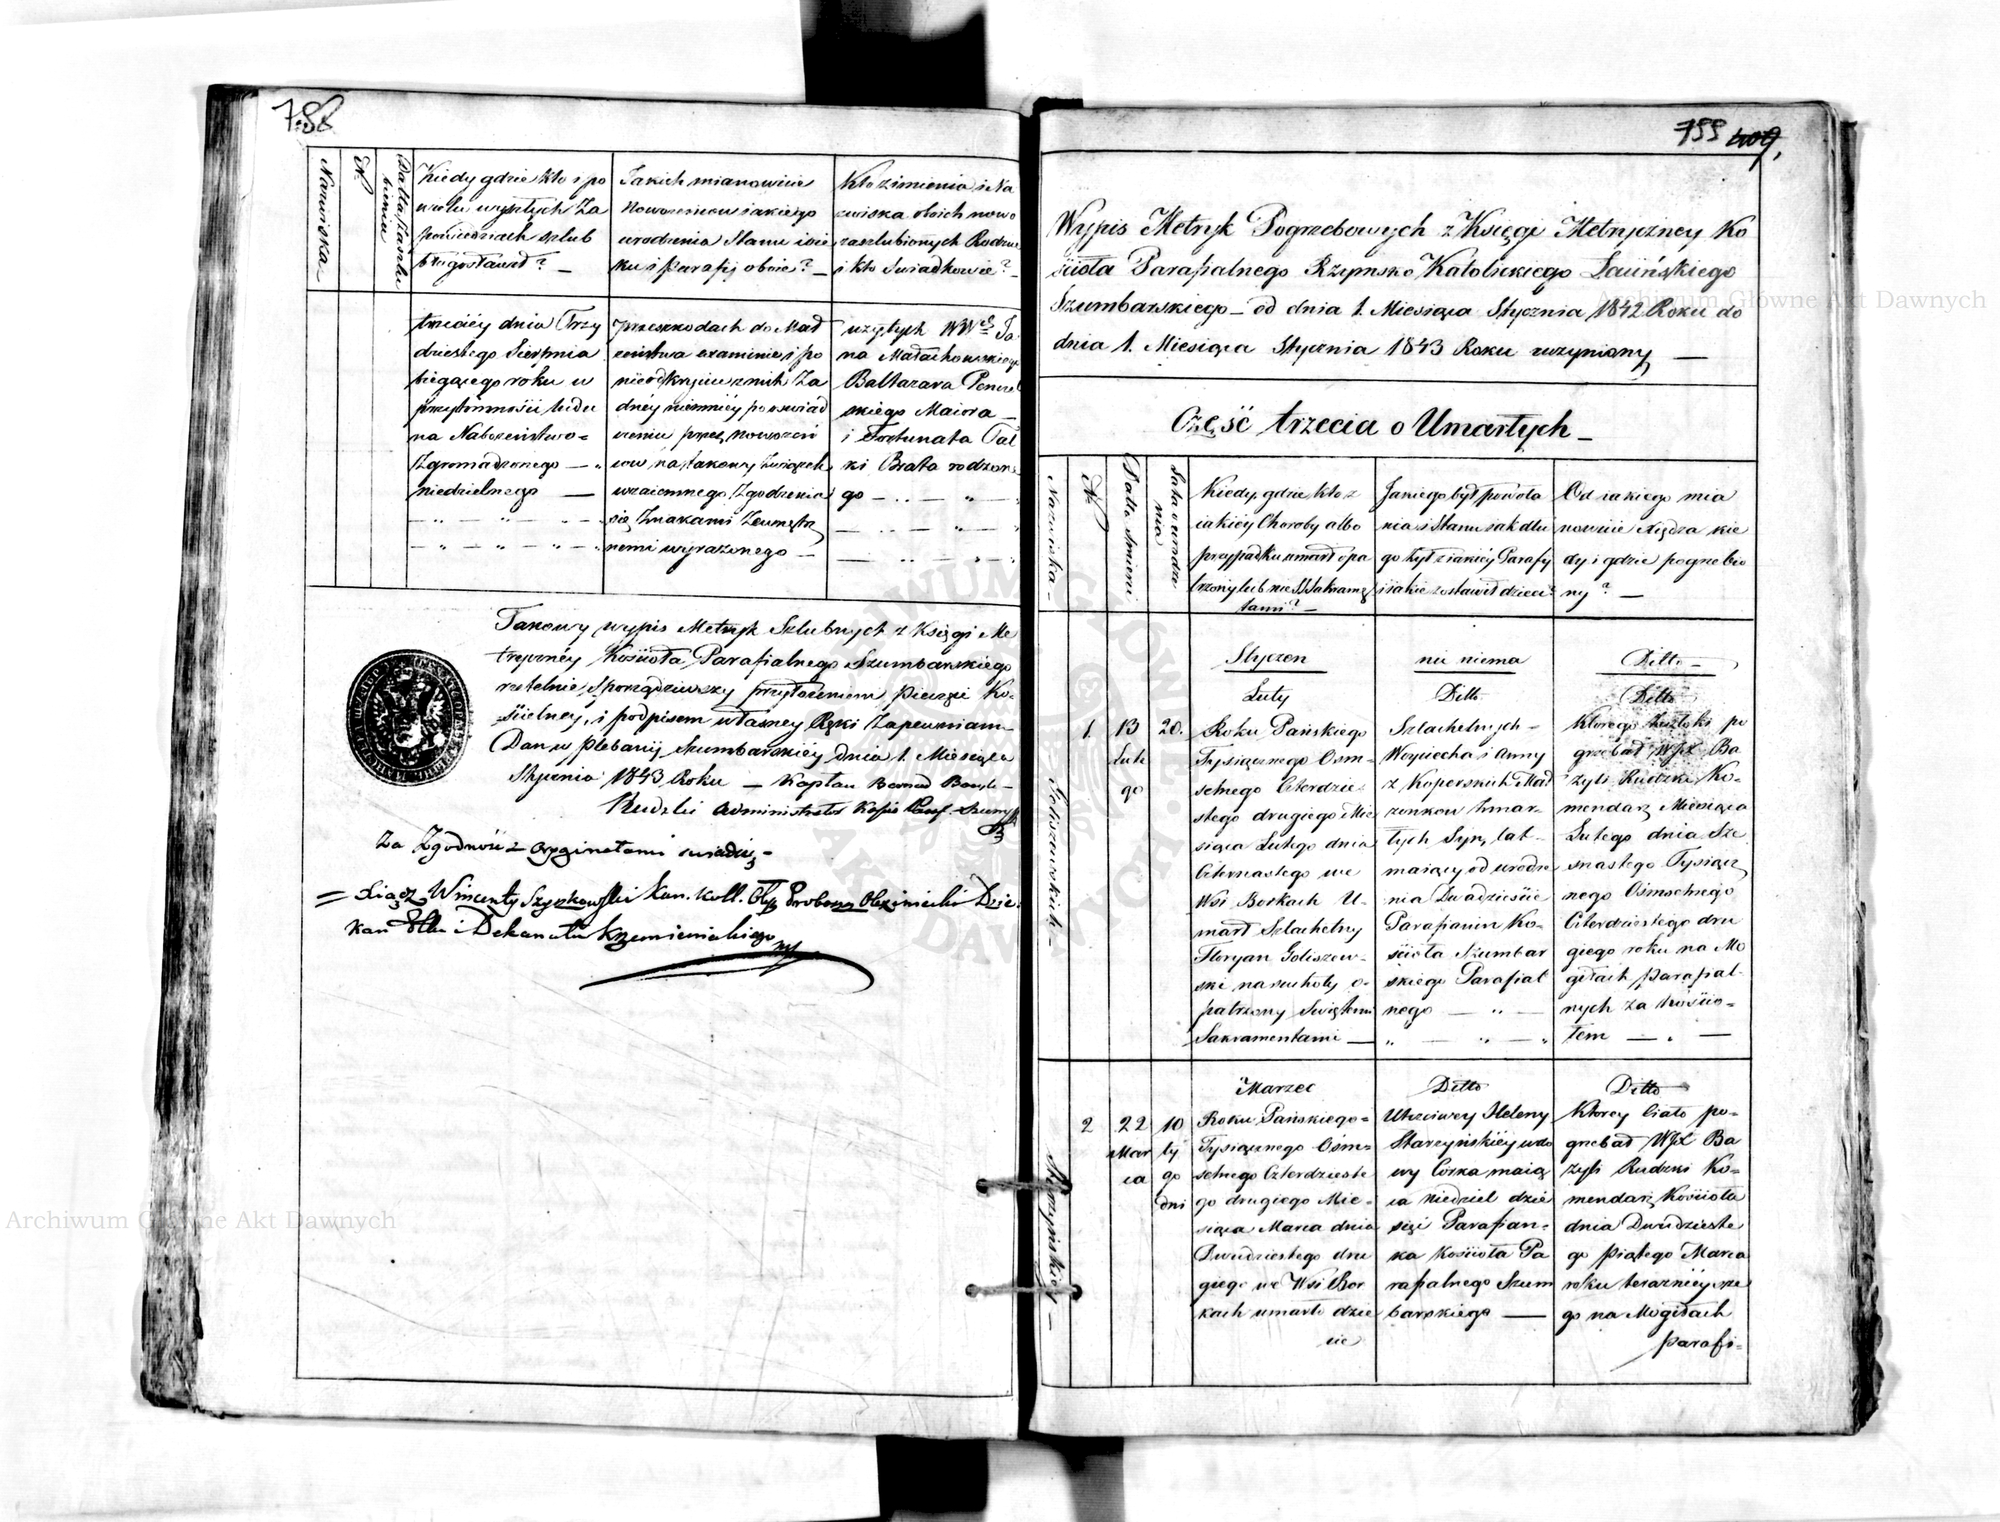 758
Nazwiska
N
Datta zaszlu
bieniu
Kiedy gdzie kto i po
wielu wyszłych Za
powiedziach szlub
błogosławił? —
Jakich mianowicie
Nowożeńcow iakiego
urodzenia Stanu i wie
ku i Parafij oboie? —
Kto z imienia i Na
zwiska obоich nowo
zaszlubionych Rodzice
i kto Swiadkowie? —
trzeciéy dnia Trzy
dziestego Sierpnia
biegącego roku w
przytomności ludu
na Nabożeństwo =
Zgromadzonego — "
niedzielnego —
przeszkodach do Mał
żeństwa examinie i po
nieodkryciu z nich Ża
dnéy niemniéy po oswiad
czeniu przez nowożeń
cow na takowy Związek
wzaiemnego Zgodzenia
się Znakami Zewnętrz
nemi wyrażonego —
użytych WWch Ja
na Małachowskiego
Baltazara
skiego Maiora —
i Fortunata Fal
ki Brata rodzone
go —
Takowy wypis Metryk Szlubnych z Księgi Me
tryczнéy Kościoła Parafialnego Szumbarskiego
rzetelnie Sporządziwszy przyłożeniem Pieczęci Ko=
ścielney, i podpisem własney Ręki Zapewniam —
Dan w Plebanij Szumbarskiéy dnia 1. Miesiąca
Stycznia 1843 Roku — Kapłan
Rudzki Administrator
Za Zgodność z Orginałami swiadczę —
= Xiądz Wincenty Szyszkowski Kan. Koll. Ołyk Proboszcz
kan i Dekanatu Krzemienieckiego
755 409,
Wypis Metryk Pogrzebowych z Księgi Metryczney Ko
ścioła Parafialnego Rzymsko Katolickiego Łacińskiego
Szumbarskiego — od dnia 1. Miesiąca Stycznia 1842 Roku do
dnia 1. Miesiąca Stycznia 1843 Roku uczyniony —
Część trzecia o Umarłych —
Nazwiska —
N
Datta Smierci
Lata urodze
nia
Kiedy, gdzie kto z
iakiéy Choroby albo
przypadku umarł opa
trzony lub nie SS Sakramę
tami? —
Jakiego był powoła
nia i Stanu iak dłu
go żył z iakiéy Parafij
i iakie zostawił dzieci?
Od iakiego mia
nowicie Xiędza kie
dy i gdzie pogrzebio
ny? —
Styczen
nic niema
Ditto —
Luty
Ditto
Ditto
Goliszewskich —
1.
13
Lute
go
20.
Roku Pańskiego
Tysiącznego Ośm=
setnego Czterdzie=
stego drugiego Mie
siąca Lutego dnia
Czternastego we
Wsi Borkach U=
marł Szlachetny
Floryan Goliszew=
ski na suchoty o=
patrzony Swiętemi
Sakramentami —
Szlachetnych —
Woyciecha i Anny
z Koperskich Mał
żonkow Umar=
łych Syn, lat —
maiący od urodze
nia Dwadzieście
Parafianin Ko=
ścioła Szumbar
skiego Parafial
nego —
Ktorego zwłoki po
grzebał WJX Ba
zyli Rudzki Ko=
mendarz Miesiąca
Lutego dnia Sze
snastego Tysiącz
nego Ośmsetnego
Czterdziestego dru
giego roku na Mo
giłach Parafial=
nych za Kościo=
łem —
Starzyńskiey —
2
22
Mar
ca
10
ty
go
dni
Marzec
Roku Pańskiego =
Tysiącznego Ośm=
setnego Czterdzieste
go drugiego Mie=
siąca Marca dnia
Dwudziestego dru
giego we Wsi Bor
kach umarło dzie
cie
Ditto
Uczciwey Heleny
Starzyńskiéy wdo
wy Corka maią
ca niedziel dzie
sięć Parafian=
ka Kościoła Pa
rafialnego Szum
barskiego —
Ditto
Ktorey Ciało po=
grzebał WJX Ba
zyli Rudzki Ko=
mendarz Kościoła
dnia Dwudzieste
go Piątego Marca
roku teraznieysze
go na Mogiłach
Parafi=
Archiwum Główne Akt Dawnych
Archiwum Główne Akt Dawnych
ARCHIWUM GŁÓWNE AKT DAWNYCH